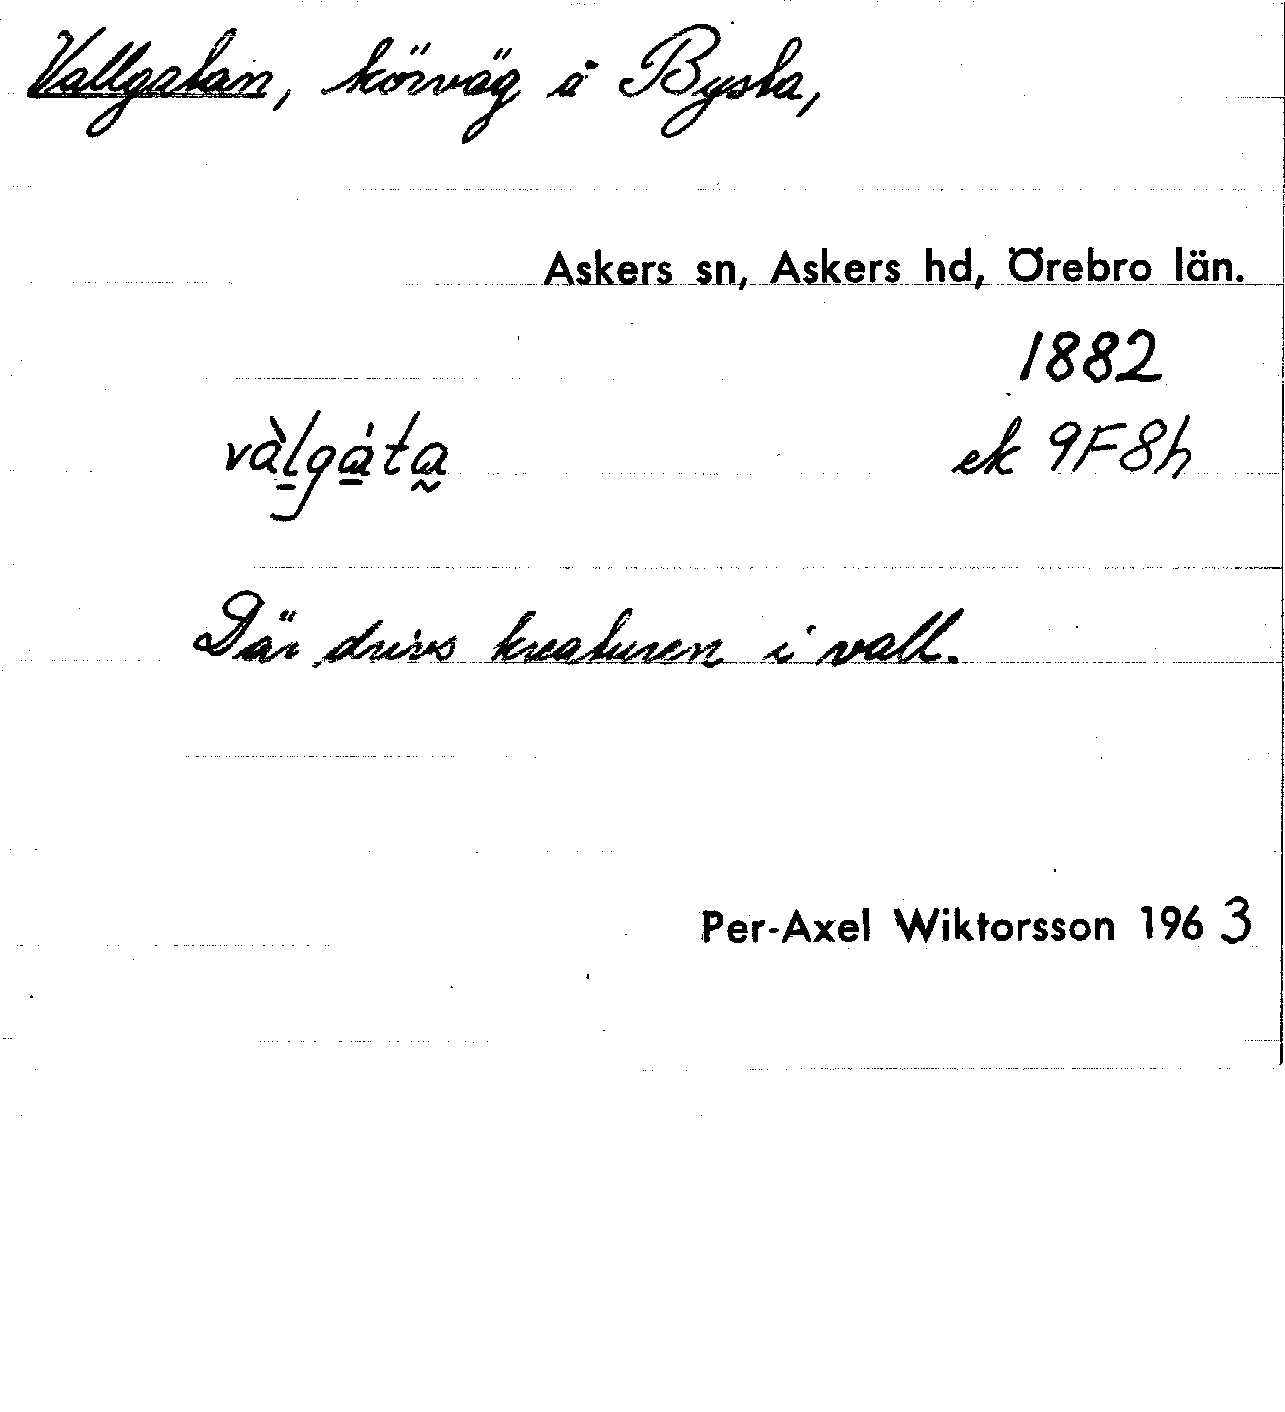 Vallgatan, körväg å Bysta,
Askers sn, Askers hd, Örebro län.
1882
vàlgáta ek 9F8h
Där drivs kreaturen i vall.
Per-Axel Wiktorsson 1963